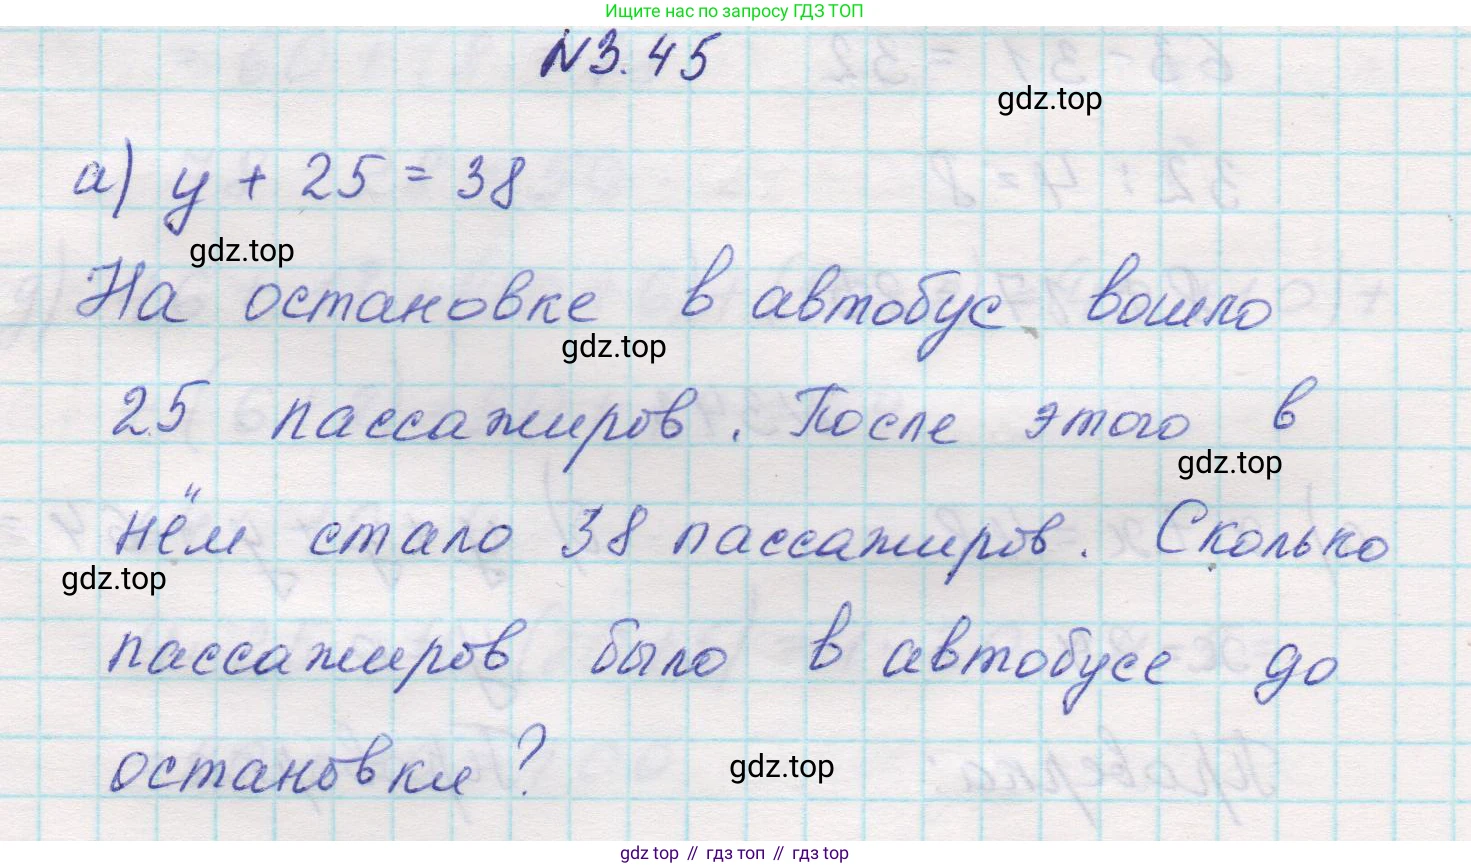 Ищите нас по запросу ГДЗ ТОП
N3.45
gdz.top
а) y + 25 = 38
gdz.top
На остановке в автобус вошло
gdz.top
25 пассажиров. После этого в
gdz.top
нём стало 38 пассажиров. Сколько
gdz.top
пассажиров было в автобусе до
остановки?
gdz.top
gdz top // гдз топ // гдз top